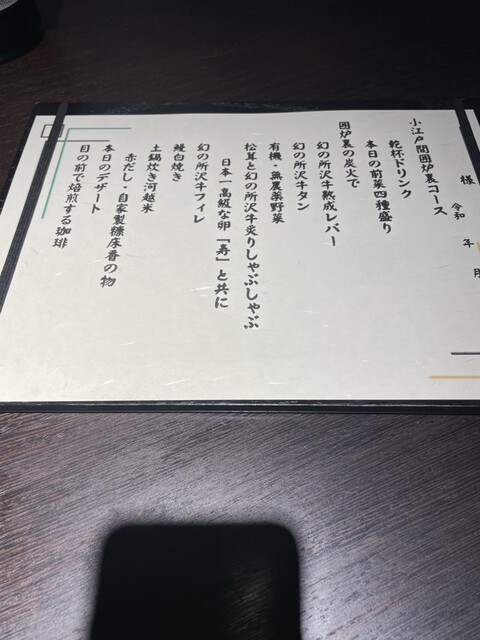 様
令和 年 月
小江戸間囲炉裏コース
乾杯ドリンク
本日の前菜四種盛り
囲炉裏の炭火で
幻の所沢牛熟成レバー
幻の所沢牛タン
有機・無農薬野菜
松茸と幻の所沢牛炙りしゃぶしゃぶ
日本一高級な卵「寿」と共に
幻の所沢牛フィレ
鰻白焼き
土鍋炊き河越米
赤だし・自家製糠床香の物
本日のデザート
目の前で焙煎する珈琲